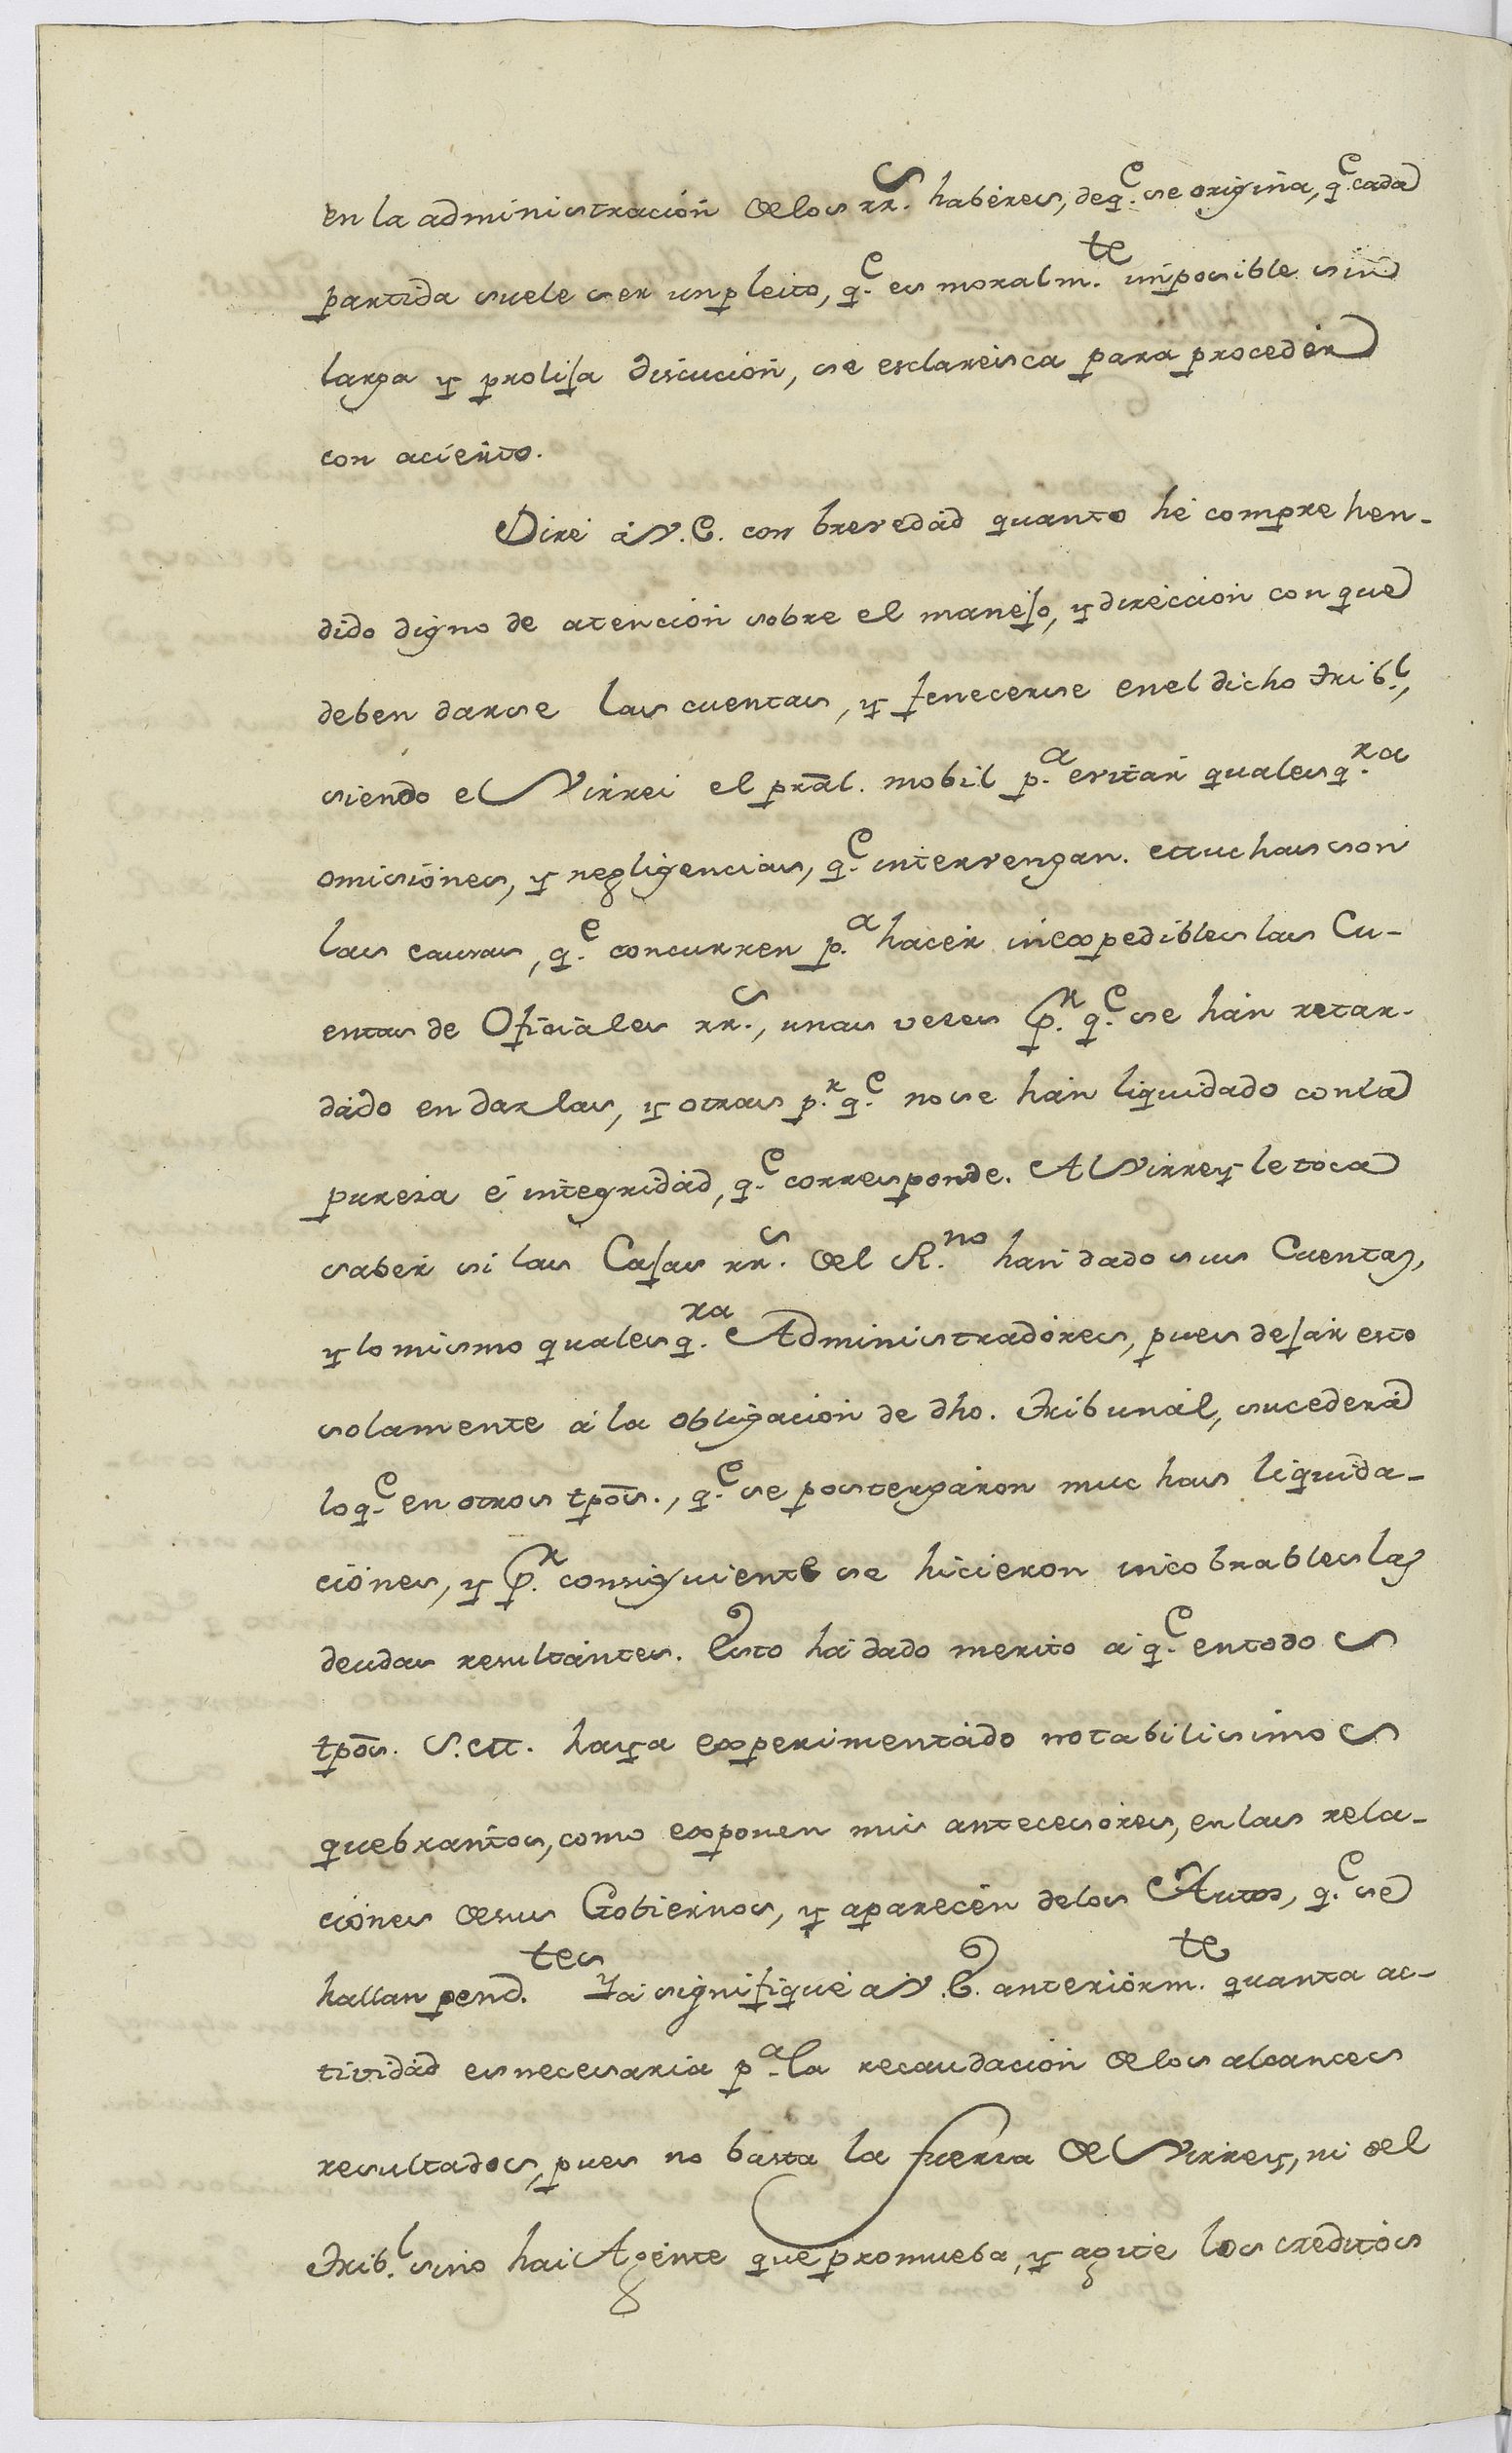 en la administración de los rr.s haberes, de q.e se origina, q.e cada
partida suele ser un pleito, q.e es moralm.te imposible sin
larga y prolija discución, se esclaresca para proceder
con acierto.
Diré á V.E. con brevedad quanto hé comprehen-
dido digno de atención sobre el manejo, y dirección con que
deben darse las cuentas, y fenecerse en el dicho Trib.l,
siendo el Virrei el pral. mobil p.a evitar qualesq.ra
omisiónes, y negligencias, q.e intervengan. Muchas son
las causas, q.e concurren p.a hacer inexpedibles las Cu-
entas de Oficiales rr.s, unas veces p.r q.e se hán retar-
dádo en darlas, y otras p.r q.e no se hán liquidado con la
pureza é integridád, q.e corresponde. Al Virrey le toca
saber si las Cajas rr.s del R.no han dado sus Cuentas,
y lo mismo qualesq.ra Administradóres, pues dejár esto
solamente á la obligación de dho. Tribunál, sucederá
lo q.e en otros tpos., q.e se postergáron muchas liquida-
ciónes, y p.r consiguiente se hicieron incobrables las
deudas resultántes. Esto há dado merito á q.e en todos
tpos. S.M. haya experimentádo notabilisimos
quebrantos, como exponen mis antecesóres, en las rela-
ciónes de sus Gobiernos, y aparecén de los Autos, q.e se
hallan pend.tes Yá signifiqué á V.E. anteriórm.te quanta ac-
tividád es necesaria p.a la recaudación de los alcances
resultados, pues no basta la fuerza del Virrey, ni del
Trib.l si no hai Agénte que promueba, y agite los creditos